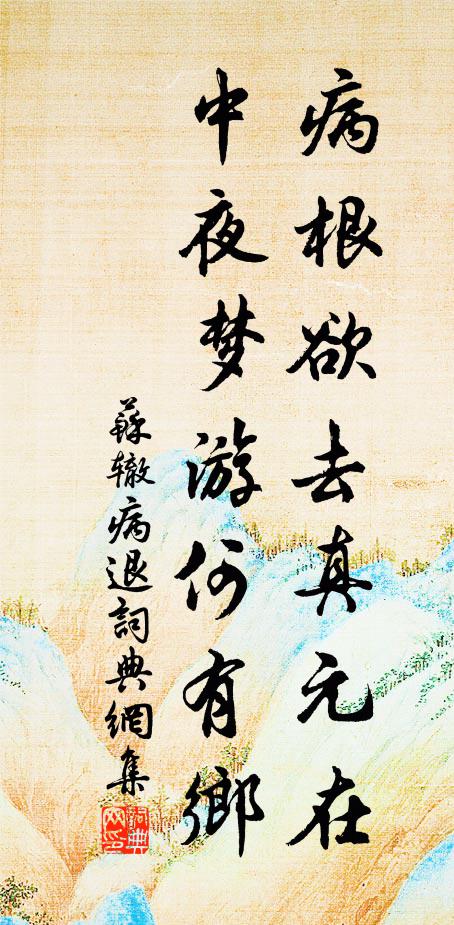 病根欲去真元在
中夜梦游何有鄉
蘇辙病退詞典網集
詞典網印